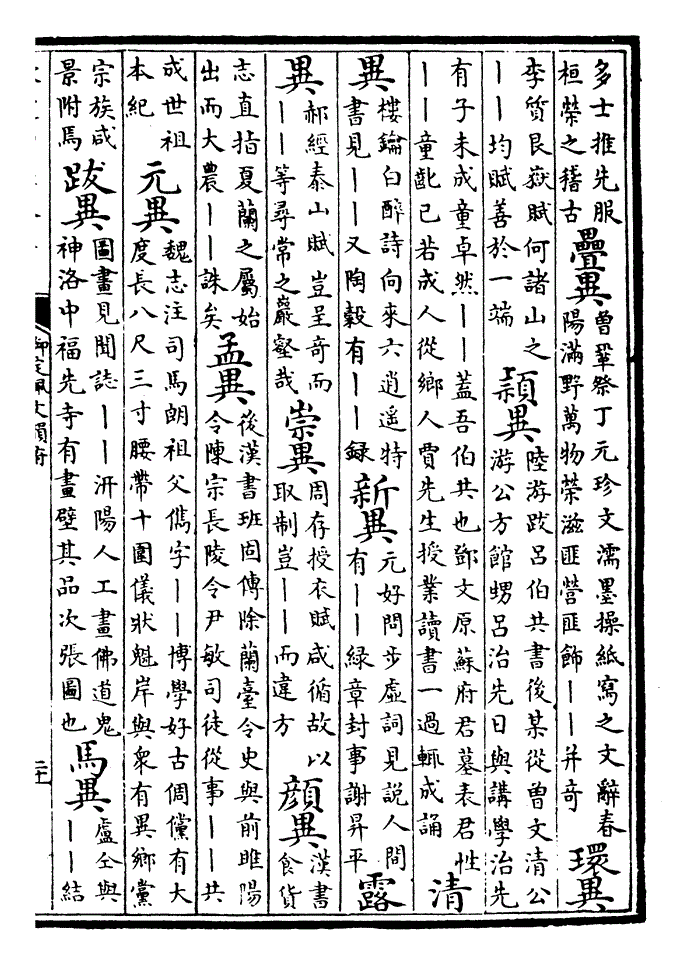 多士推先服
桓榮之稽古
疊異
曾鞏祭丁元珍文濡墨操紙寫之文辭春
陽滿野萬物榮滋匪營匪飾——并奇
環異
李質艮嶽賦何諸山之
——均賦善於一端
頴異
陸游跋呂伯共書後某從曾文清公
游公方館甥呂治先日與講學治先
有子未成童卓然——蓋吾伯共也鄧文原蘇府君墓表君性
——童齓已若成人從鄉人賈先生授業讀書一過輒成誦
清
異
樓鑰白醉詩向來六逍遙特
書見——又陶穀有——録
新異
元好問步虛詞見說人間
有——緑章封事謝昇平
露
異
郝經泰山賦豈呈奇而
——等尋常之巖壑哉
崇異
周存授衣賦咸循故以
取制豈——而違方
顔異
漢書
食貨
志直指夏蘭之屬始
出而大農——誅矣
孟異
後漢書班固傳除蘭臺令史與前睢陽
令陳宗長陵令尹敏司徒從事——共
成世祖
本紀
元異
魏志注司馬朗祖父儁字——博學好古倜儻有大
度長八尺三寸腰帶十圍儀狀魁岸與衆有異鄉黨
宗族咸
景附焉
跋異
圖畫見聞誌——汧陽人工畫佛道鬼
神洛中福先寺有畫壁其品次張圖也
馬異
盧仝與
——結
御定佩文韻府